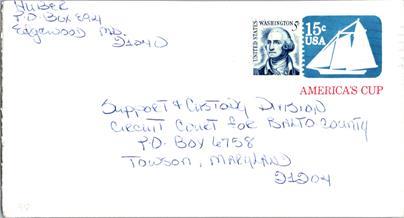 HUBER
P.O. BOX 894
Edgewood MD.
21040
UNITED STATES
WASHINGTON 5c
15c
USA
AMERICA'S CUP
Support & Custody Division
Circuit Court for BALTO County
P.O. BOX 6758
Towson, MARYLAND
21204